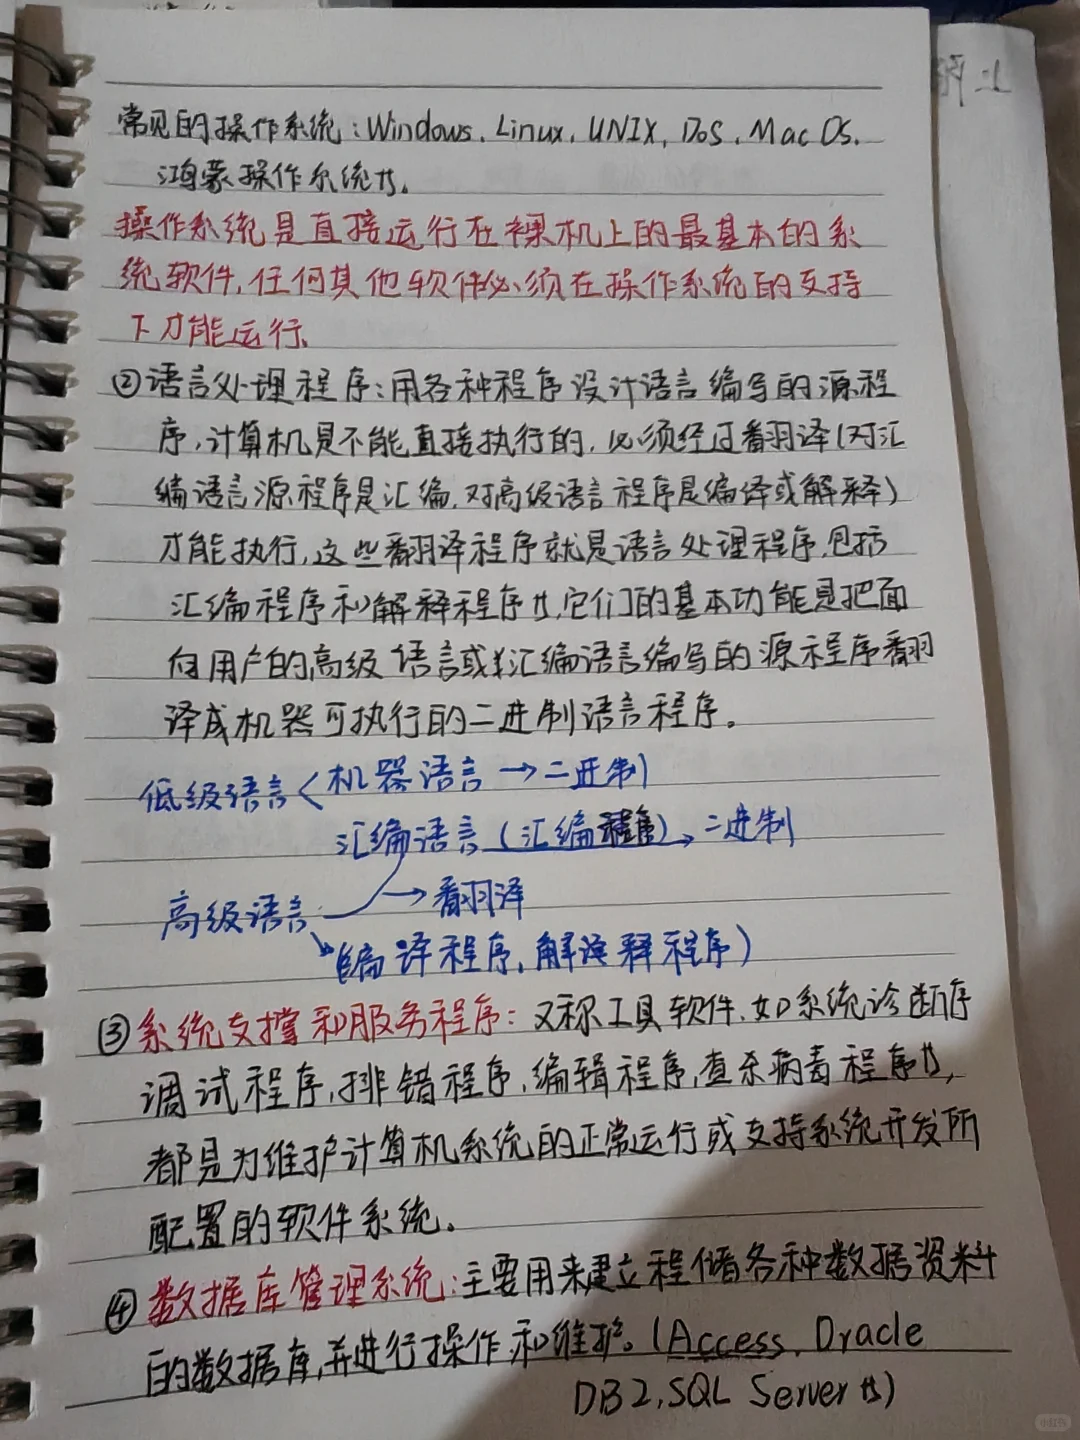 常见的操作系统：Windows、Linux、UNIX、DOS、Mac OS、
鸿蒙操作系统等。
操作系统是直接运行在裸机上的最基本的系
统软件，任何其他软件必须在操作系统的支持
下才能运行。
②语言处理程序：用各种程序设计语言编写的源程
序，计算机是不能直接执行的，必须经过翻译(对汇
编语言源程序是汇编，对高级语言程序是编译或解释)
才能执行，这些翻译程序就是语言处理程序，包括
汇编程序和解释程序等，它们的基本功能是把面
向用户的高级语言或汇编语言编写的源程序翻
译成机器可执行的二进制语言程序。
低级语言<机器语言→二进制
汇编语言(汇编程序)→二进制
高级语言→翻译
(编译程序，解释程序)
③系统支撑和服务程序：又称工具软件，如系统诊断序
调试程序，排错程序，编辑程序，查杀病毒程序等，
都是为维护计算机系统的正常运行或支持系统开发所
配置的软件系统。
④数据库管理系统：主要用来建立程储各种数据资料
的数据库，并进行操作和维护。(Access、Oracle
DB2，SQL Server等)